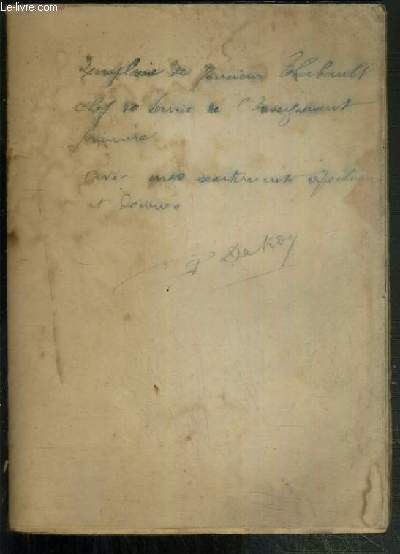 Le-Livre.com
Exemplaire de Monsieur Thibault
chef de Service de l'Enseignement
primaire
avec mes sentiments
et dévoués
P Dekoy